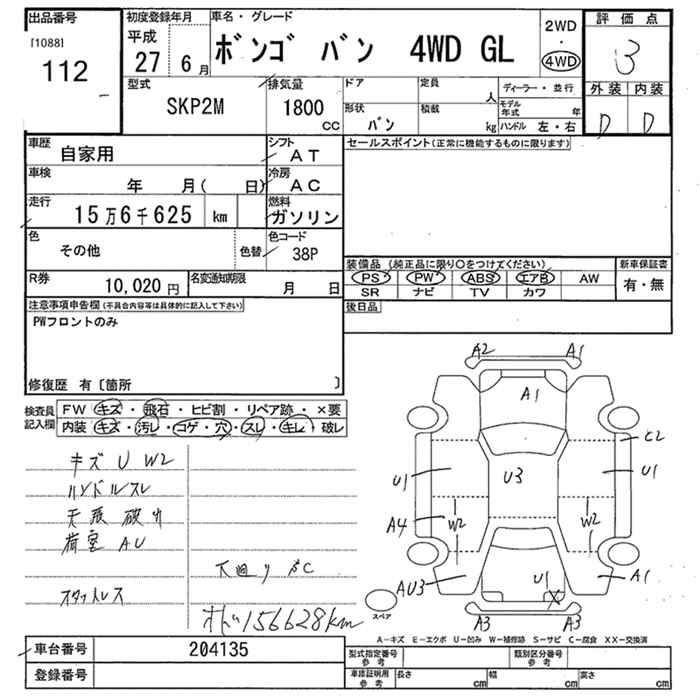 出品番号
[1088]
112
初度登録年月
平成
27 6月
車名・グレード
ボンゴ バン 4WD GL
2WD
・
4WD
評価点
3
外装 内装
D D
型式
SKP2M
排気量
1800
CC
ドア
形状
バン
定員
人
積載
kg
ディーラー・並行
モデル年式 年
ハンドル 左・右
車歴
自家用
シフト
AT
車検
年 月( 日)
冷房
AC
走行
15万6千625 km
燃料
ガソリン
色
その他
色替
色コード
38P
R券
10,020円
名変通知期限
月 日
セールスポイント(正常に機能するものに限ります)
装備品(純正品に限り○をつけてください)
PS PW ABS エアB AW
SR ナビ TV カワ
新車保証書
有・無
後日品
注意事項申告欄(不具合内容等は具体的に記入して下さい)
PWフロントのみ
修復歴 有〔箇所 〕
検査員記入欄
FW キズ・飛石・ヒビ割・リペア跡・×要
内装 キズ・汚レ・コゲ・穴・スレ・キレ・破レ
キズ U W2
ハンドルスレ
天張 破れ
荷室 AU
スタットレス
下回り SC
オド156628km
A2 A1
A1
C2
U1 U3 U1
A4 W2 W2
AU3 U1 X A1
A3 A3
スペア
A-キズ E-エクボ U-凹み W-補修跡 S-サビ C-腐食 XX-交換済
車台番号
204135
登録番号
型式指定番号
参考
類別区分番号
参考
車庫証明用
参考
長さ cm 幅 cm 高さ cm